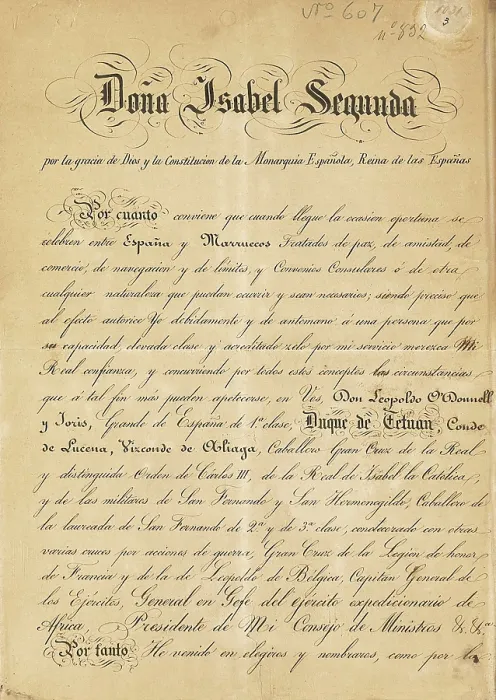 Nº 607
nº 832
3
Doña Isabel Segunda
por la gracia de Dios y la Constitucion de la Monarquia Española, Reina de las Españas
Por cuanto conviene que cuando llegue la ocasion oportuna se
celebren entre España y Marruecos Tratados de paz, de amistad, de
comercio, de navegacion y de límites, y Convenios Consulares ó de otra
cualquier naturaleza que puedan ocurrir y sean necesarios; siendo preciso que
al efecto autorice Yo debidamente y de antemano á una persona que por
su capacidad, elevada clase y acreditado zelo por mi servicio merezca Mi
Real confianza, y concurriendo por todos estos conceptos las circunstancias
que á tal fin más pueden apetecerse, en Vos, Don Leopoldo O'Donnell
y Joris, Grande de España de 1ª clase, Duque de Tetuan, Conde
de Lucena, Vizconde de Aliaga, Caballero Gran Cruz de la Real
y distinguida Orden de Carlos III, de la Real de Isabel la Católica,
y de las militares de San Fernando y San Hermenegildo, Caballero de
la laureada de San Fernando de 2ª y de 3ª clase, condecorado con otras
varias cruces por acciones de guerra, Gran Cruz de la Legion de honor
de Francia y de la de Leopoldo de Bélgica, Capitan General de
los Ejércitos, General en Gefe del ejército expedicionario de
Africa, Presidente de Mi Consejo de Ministros &. &.ª
Por tanto He venido en elegiros y nombraros, como por la